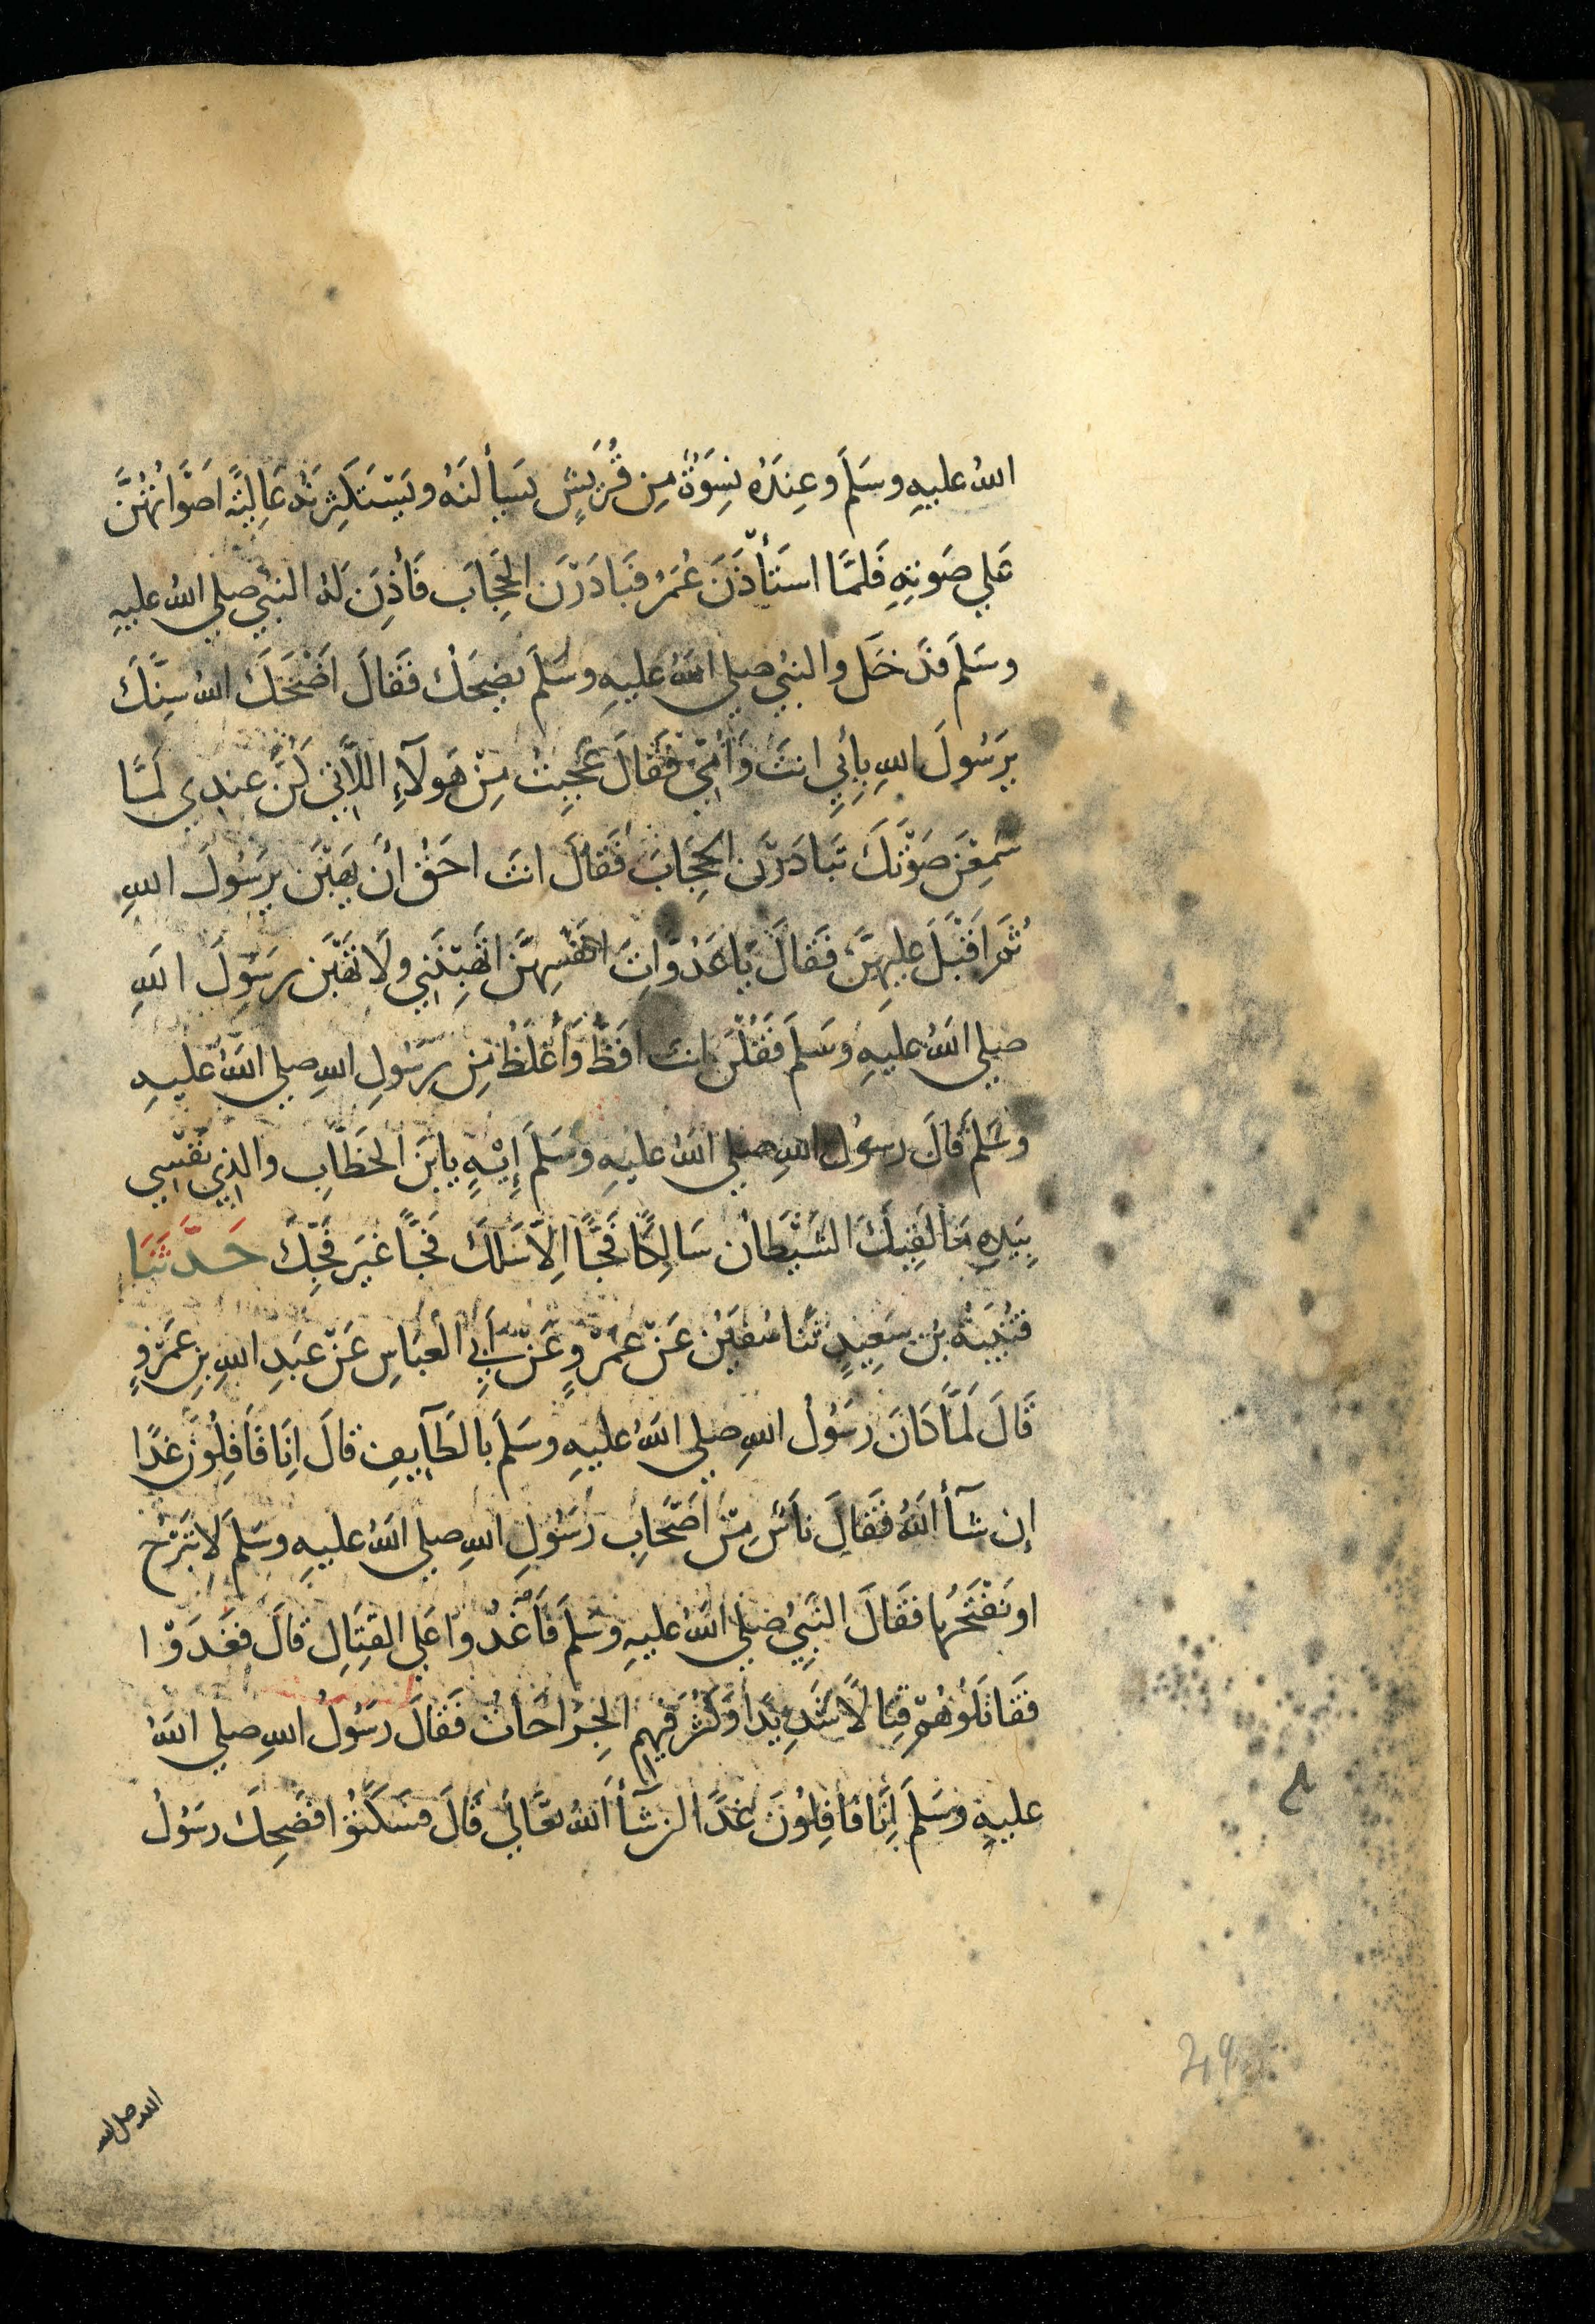 اللهُ عليهِ وسَلَمَ وعِندَهُ نِسوَةٌ مِن قُرَيشٍ يَسألنَهُ ويَستَكثِرنَهُ عَاليَةً اَصوَاتُهُنَّ
عَلي صَوتِهِ فَلمَّا استَأذَنَ عُمَرُ فبَادَرْنَ الحِجَابَ فَأذِنَ لهُ النبيُ صلي اللهُ عليهِ
وسَلمَ فدَخَل والنبيُ صلي اللهُ عليهِ وسَلَم يضحَكُ فقالَ اَضْحَكَ اللهُ سِنَّكَ
يرَسُولَ اللهِ بِاَبِي انتَ وَاُمِّي فقَالَ عَجِبتُ مِنْ هَولآءِ اللاَّتي كُنَّ عندِي لمَّا
سَمِعْنَ صَوْتكَ تَبادَرْنَ الحِجَابَ فَقالَ انتَ احَقُ اَن يهَبْنَ يرَسُولَ اللهِ
ثُمَ اَقبَلَ عليهِنَّ فقالَ يَاعَدُوَّاتِ انفُسِهنَّ اتَهَبْنَنِي ولَا تهَبْنَ رسُولَ اللهِ
صلي اللهُ عليهِ وسَلمَ فقُلْنَ انتَ افَظُّ وَأغلَظُ مِن رسُولِ اللهِ صلي اللهُ عليهِ
وسَلمَ قالَ رسولُ اللهِ صلي اللهُ عليهِ وسَلمَ إِيْهٍ يابنَ الخطَّابِ والذِي نفْسِي
بيَدِهِ مَا لقِيكَ الشَيْطَانُ سَالِكًا فَجًّا اِلاَّ سَلكَ فَجًّا غيَر فَجِّكَ حَدَّثَنَا
قتُيبَةُ بنُ سَعِيدٍ ثَنا سُفيَن عَنْ عَمْرٍو عَنْ أَبِي الْعبَاسِ عَنْ عَبدِ اللهِ بنِ عَمْرٍو
قَالَ لَمَّا كَانَ رسُولُ اللهِ صلي اللهُ عليهِ وسَلمَ بالطَآيِفِ قالَ اِنَا قَافِلُونَ غَدًا
إن شَآأَ اللهُ فقَالَ نَاسٌ مِنْ اَصْحَابِ رَسُولِ اللهِ صلي اللهُ عليهِ وسَلمَ لاَ نَبْرَحُ
او نَفْتَحُهَا فقَالَ النَبيُ صلي اللهُ عليهِ وسَلمَ فَاَغْدُوا عَلي القِتَالِ قالَ فغَدَوْا
فقَاتَلُوهُمْ قِتالًا شَدِيدًا وَكَثُرَ فيهِم الجِرَاحَاتُ فقَالَ رسُولُ اللهِ صلي اللهُ
عليهِ وسَلمَ اِنَّا قَافِلُونَ غدًا ان شَآأ اللهُ تعَالي قَالَ فسَكَتُوا فضَحِكَ رسُولُ
29
الله صلى الله